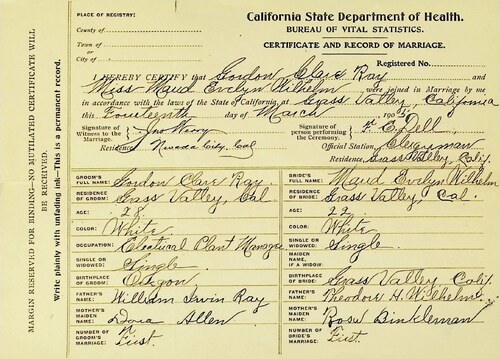 California State Department of Health.
BUREAU OF VITAL STATISTICS.
CERTIFICATE AND RECORD OF MARRIAGE.
PLACE OF REGISTRY:
County of
Town of
or
City of
Registered No.
I HEREBY CERTIFY that Gordon Clare Ray and
Miss Maud Evelyn Wilhelm were joined in Marriage by me
in accordance with the laws of the State of California, at Grass Valley, California
this Fourteenth day of March 190
Signature of Witness to the Marriage.
Residence, Nevada City, Cal
Signature of person performing the Ceremony. E. Dell
Official Station, Clergyman
Residence, Grass Valley, Calif.
MARGIN RESERVED FOR BINDING—NO MUTILATED CERTIFICATE WILL BE RECEIVED.
Write plainly with unfading ink—This is a permanent record.
GROOM'S FULL NAME: Gordon Clare Ray
RESIDENCE OF GROOM: Grass Valley, Cal
AGE: 28
COLOR: White
OCCUPATION: Electrical Plant Manager
SINGLE OR WIDOWED: Single
BIRTHPLACE OF GROOM: Oregon
FATHER'S NAME: William Irvin Ray
MOTHER'S MAIDEN NAME: Dora Allen
NUMBER OF GROOM'S MARRIAGE: First
BRIDE'S FULL NAME: Maud Evelyn Wilhelm
RESIDENCE OF BRIDE: Grass Valley Cal.
AGE: 22
COLOR: White
SINGLE OR WIDOWED: Single
MAIDEN NAME, IF A WIDOW:
BIRTHPLACE OF BRIDE: Grass Valley Calif.
FATHER'S NAME: Theodore H. Wilhelm
MOTHER'S MAIDEN NAME: Rosa Binkleman
NUMBER OF BRIDE'S MARRIAGE: First.